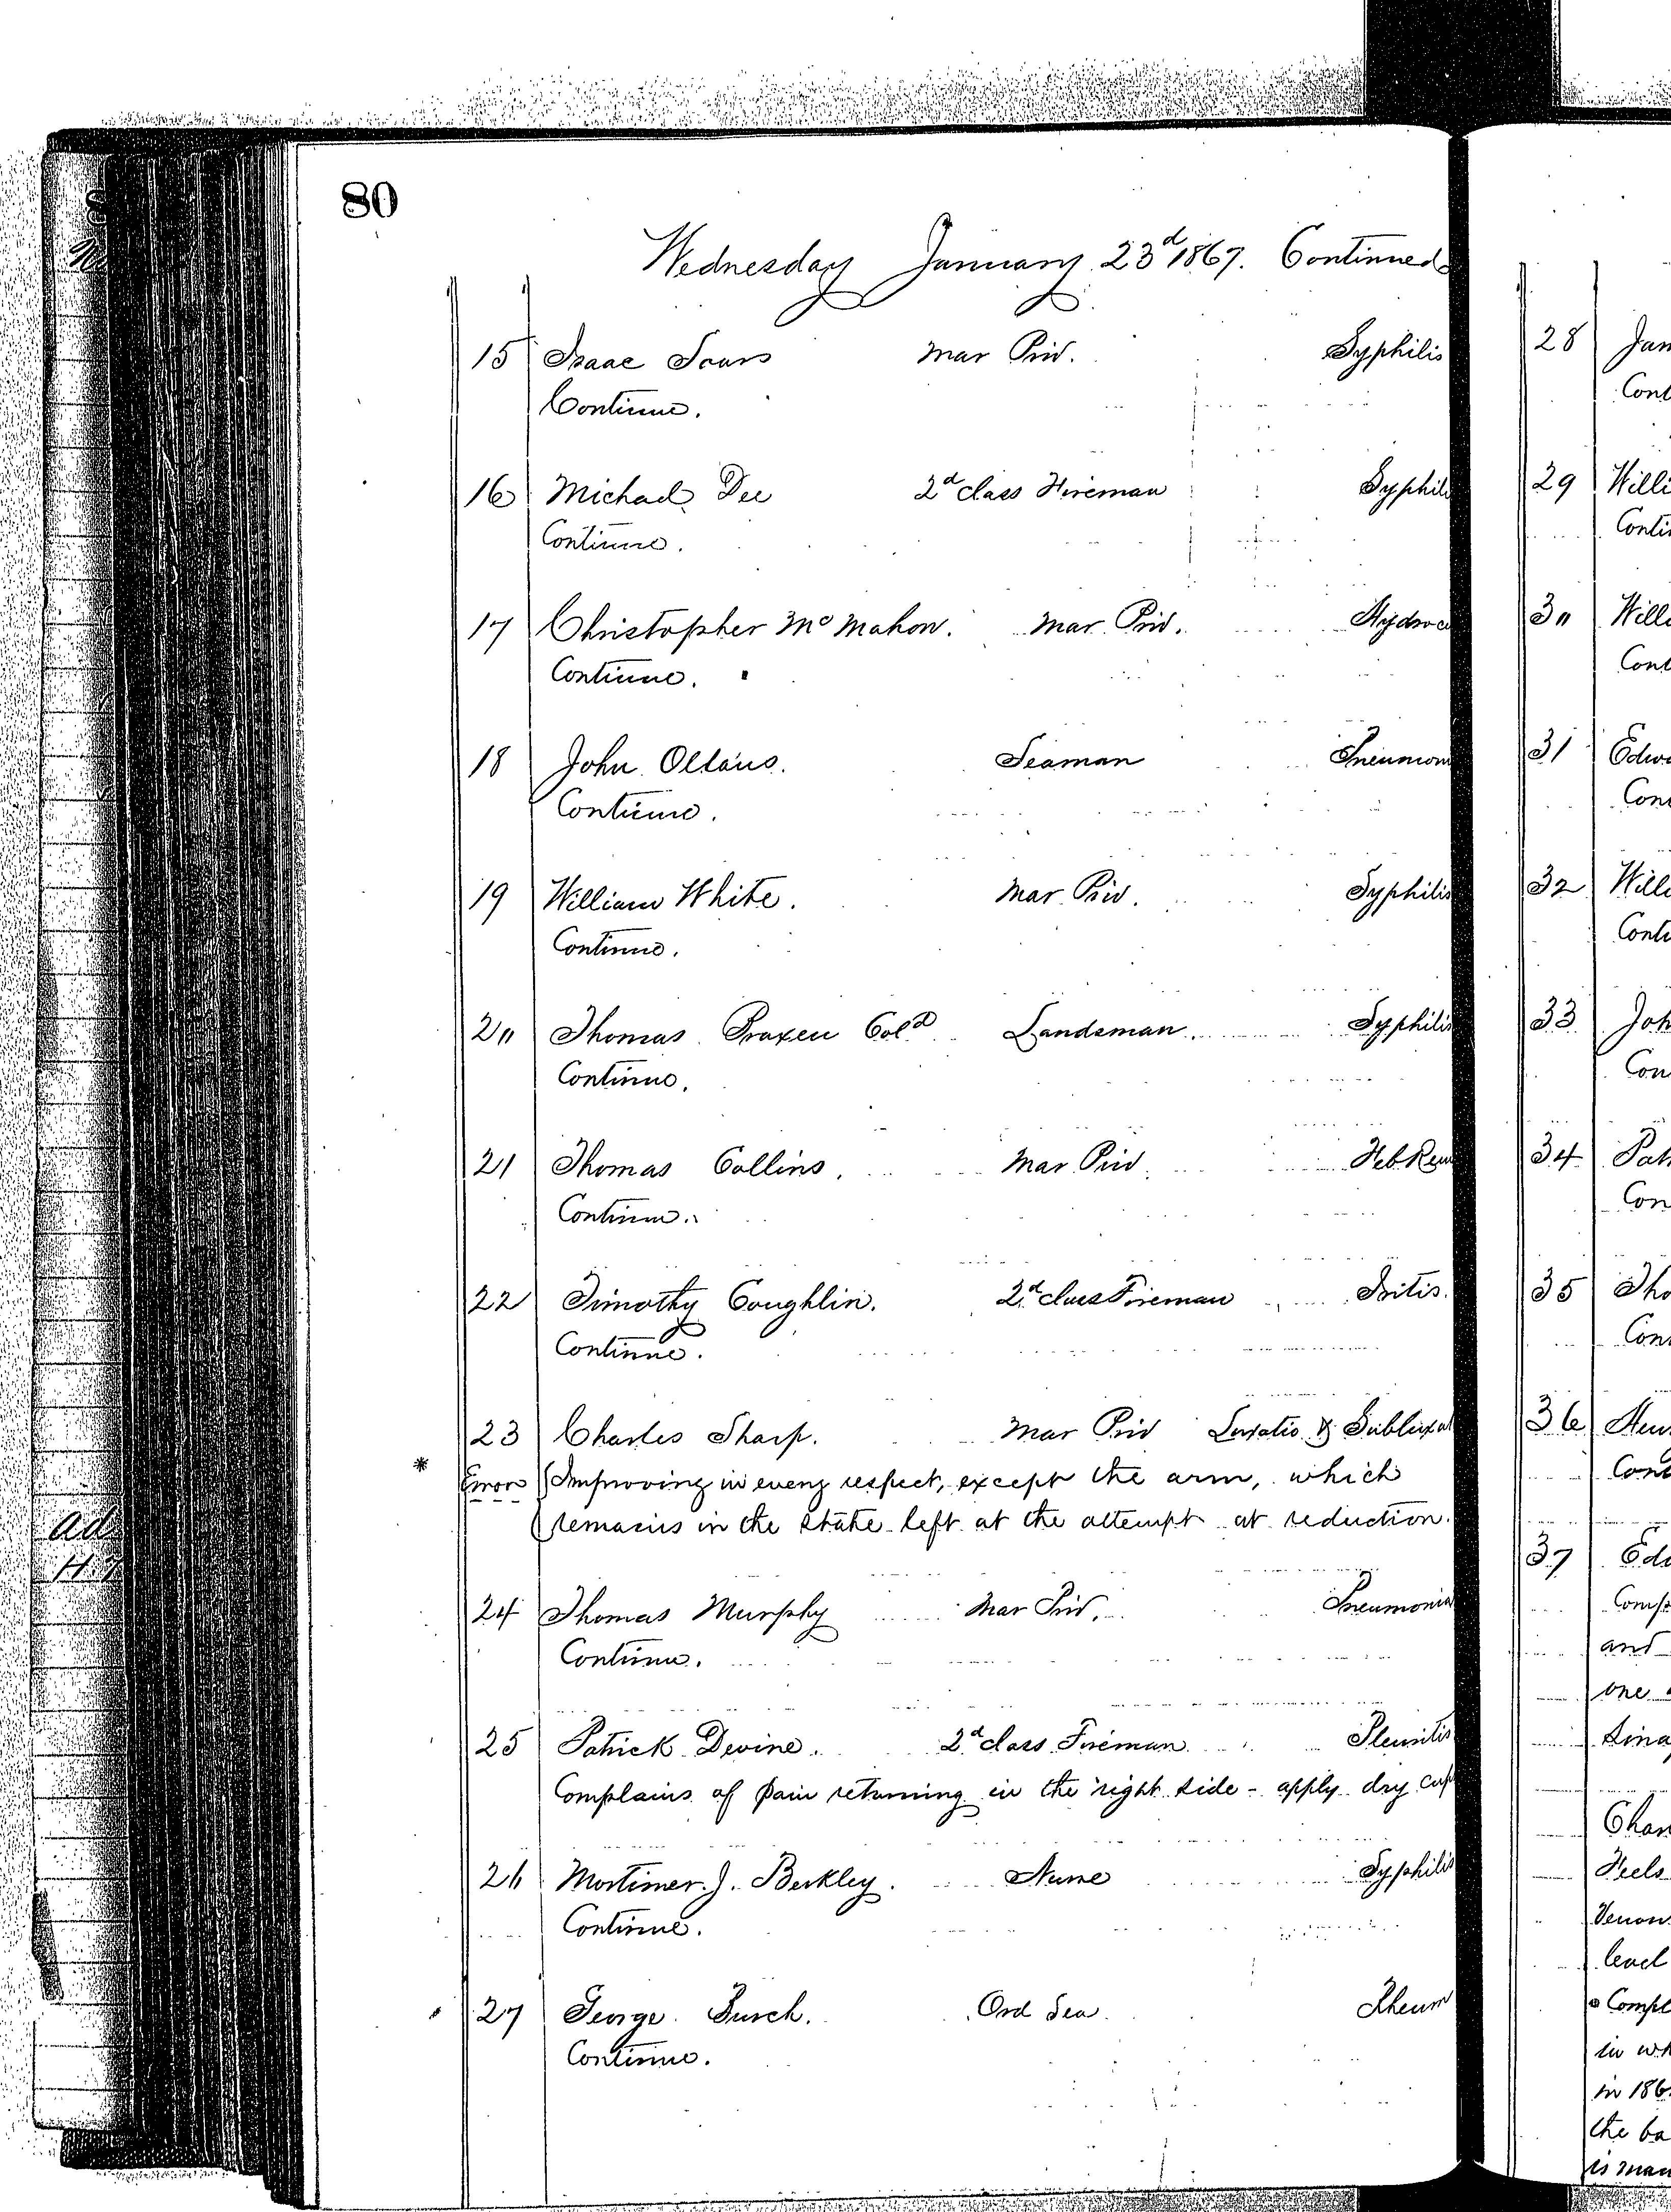 80
Wednesday January 23d 1867. Continued
15 Isaac Soars Mar Priv. Syphilis
Continue.
16 Michael Dee 2d class Fireman Syphili
Continue.
17 Christopher Mc Mahon. Mar Priv. Hydroce
Continue.
18 John Seaman Pneumon
Continue.
19 William White. Mar Priv. Syphilis
Continue.
20 Thomas Cold Landsman. Syphilis
Continue.
21 Thomas Collins. Mar Priv. Feb Rem
Continue.
22 Timothy Coughlin. 2d class Fireman Iritis.
Continue.
23 Charles Sharp. Mar Priv Luxatio & Subluxat
* Error Improving in every respect, except the arm, which
remains in the state left at the attempt at reduction.
24 Thomas Murphy Mar Priv. Pneumonia
Continue.
25 Patrick Devine. 2d class Fireman Pleuritis
Complains of pain returning in the right side - apply dry cup
26 Mortimer J. Berkley. Nurse Syphilis
Continue.
27 George Ord Sea. Rheum
Continue.
28 Jam
Cont
29 Willi
Conti
30 Willi
Cont
31 Edwa
Con
32 Will
Conti
33 Joh
Con
34 Pat
Con
35 Tho
Con
36 Hen
Cont
37 Edw
Comp
and
one
Sina
Char
Feels
Venous
lead
Compl
in wh
in 186
the ba
is man